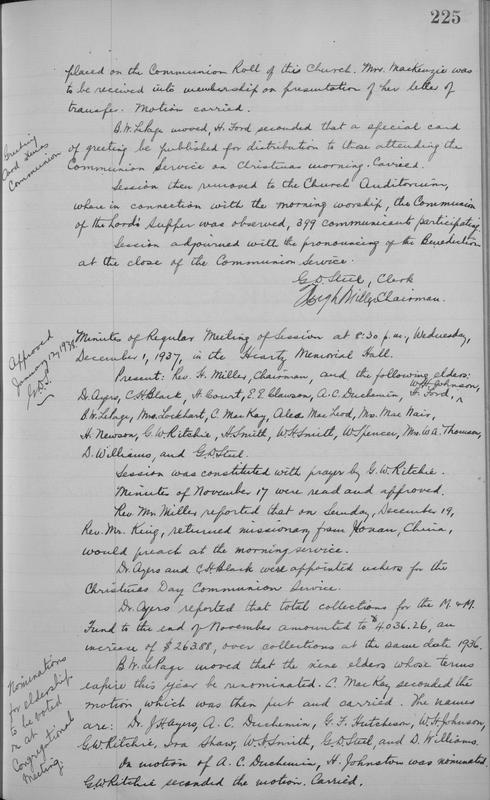 225
placed on the Communion Roll of this Church. Mrs. MacKenzie was
to be received into membership on presentation of her letter of
transfer. Motion carried.
B.W. LePage moved, H. Ford seconded that a special card
of greeting be published for distribution to those attending the
Communion Service on Christmas morning. Carried.
Greeting
Card Xmas
Communion
Session then removed to the Church Auditorium,
where in connection with the morning worship, the Communion
of the Lord's Supper was observed, 399 communicants participating.
Session adjourned with the pronouncing of the Benediction
at the close of the Communion Service.
G.D. Steel, Clerk
Hugh Miller, Chairman.
Approved
January 12, 1938
G.D.S.
Minutes of Regular Meeting of Session at 8:30 p.m., Wednesday,
December 1, 1937, in the Heartz Memorial Hall.
Present: Rev. H. Miller, Chairman, and the following elders:
W.H. Johnson,
Dr. Ayers, C.H. Black, H. Court, E.E. Clawson, A.C. Duchemin, F. Ford,
B.W. LePage, Mrs. Lockhart, C. MacKay, Alex MacLeod, Mrs. MacNair,
H. Newson, G.W. Ritchie, H. Smith, W.F. Smith, W. Spencer, Mrs. W.A. Thomson,
D. Williams, and G.D. Steel.
Session was constituted with prayer by G.W. Ritchie.
Minutes of November 17 were read and approved.
Rev. Mr. Miller reported that on Sunday, December 19,
Rev. Mr. King, returned missionary from Honan, China,
would preach at the morning service.
Dr. Ayers and C.H. Black were appointed ushers for the
Christmas Day Communion Service.
Dr. Ayers reported that total collections for the M. & M.
Fund to the end of November amounted to $4036.26, an
increase of $263.88, over collections at the same date 1936.
B.W. LePage moved that the nine elders whose terms
expire this year be renominated. C. MacKay seconded the
motion, which was then put and carried. The names
are: Dr. J.H. Ayers, A.C. Duchemin, G.F. Hutcheson, W.H. Johnson,
G.W. Ritchie, Ira Shaw, W.F. Smith, G.D. Steel, and D. Williams.
Nominations
for eldership
to be voted
on at
Congregational
Meeting.
On motion of A.C. Duchemin, H. Johnston was nominated.
G.W. Ritchie seconded the motion. Carried.